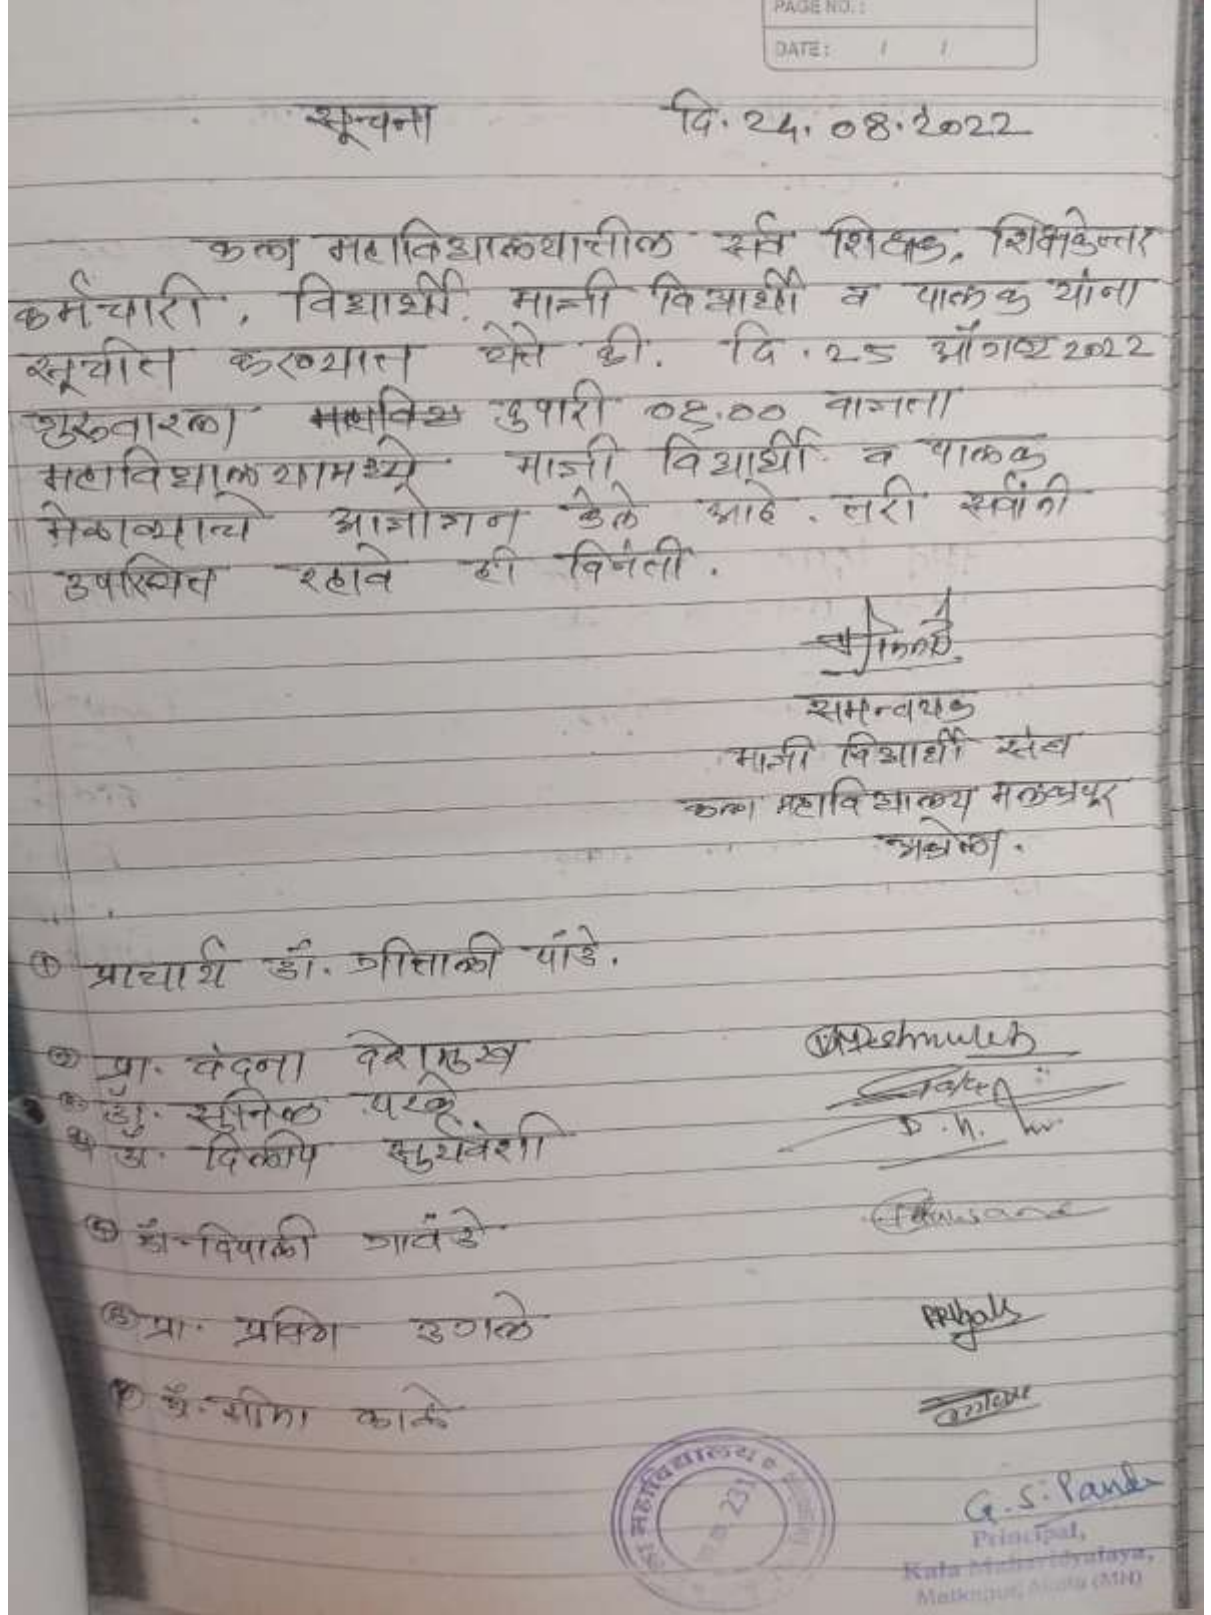 PAGE NO.:
DATE: / /
सूचना दि. 24. 08. 2022
कला महाविद्यालयातील सर्व शिक्षक, शिक्षकेत्तर
कर्मचारी, विद्यार्थी, माजी विद्यार्थी व पालक यांना
सूचीत करण्यात येते की. दि. 25 ऑगस्ट 2022
गुरुवारला दुपारी 01.00 वाजता
महाविद्यालयामध्ये माजी विद्यार्थी व पालक
मेळाव्याचे आयोजन केले आहे. तरी सर्वांनी
उपस्थित रहावे ही विनंती.
समन्वयक
माजी विद्यार्थी संघ
कला महाविद्यालय मलकापूर
अकोला.
① प्राचार्य डॉ. गीताली पांडे.
② प्रा. वंदना देशमुख
③ डॉ. सुनिल
④ डॉ. दिलीप सुर्यवंशी
⑤ डॉ. दिपाली गावंडे
⑥ प्रा. प्रविण उगले
⑦ काळे
महाविद्यालय
231
G. S. Pande
Principal,
Kala Mahavidyalaya,
Malkapur, Akola (MH)